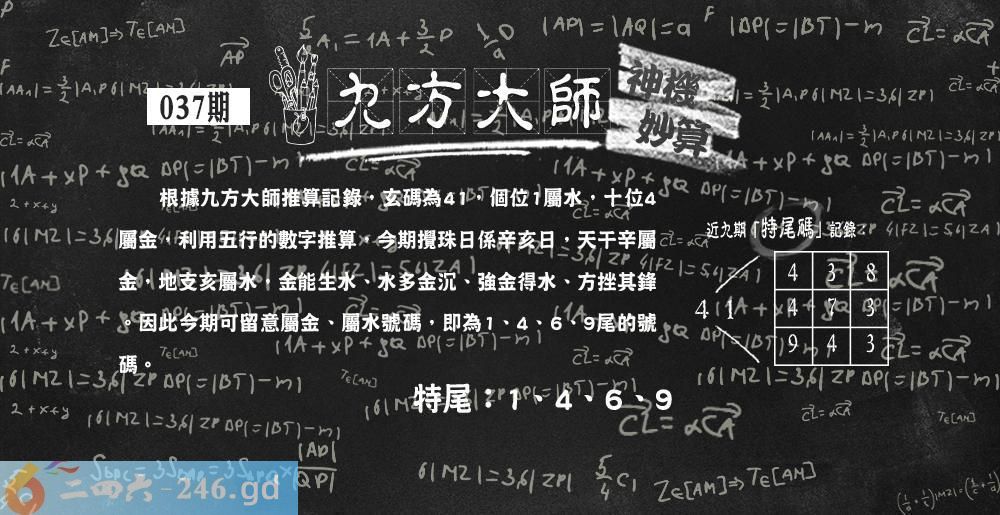 037期
九方大師
神機
妙算
根據九方大師推算記錄，玄碼為41，個位1屬水，十位4
屬金，利用五行的數字推算，今期攪珠日係辛亥日，天干辛屬
金，地支亥屬水，金能生水、水多金沉、強金得水、方挫其鋒
。因此今期可留意屬金、屬水號碼，即為1、4、6、9尾的號
碼。
特尾：1、4、6、9
近九期「特尾碼」記錄：
41
4 3 8
4 7 3
9 4 3
二四六-246.gd